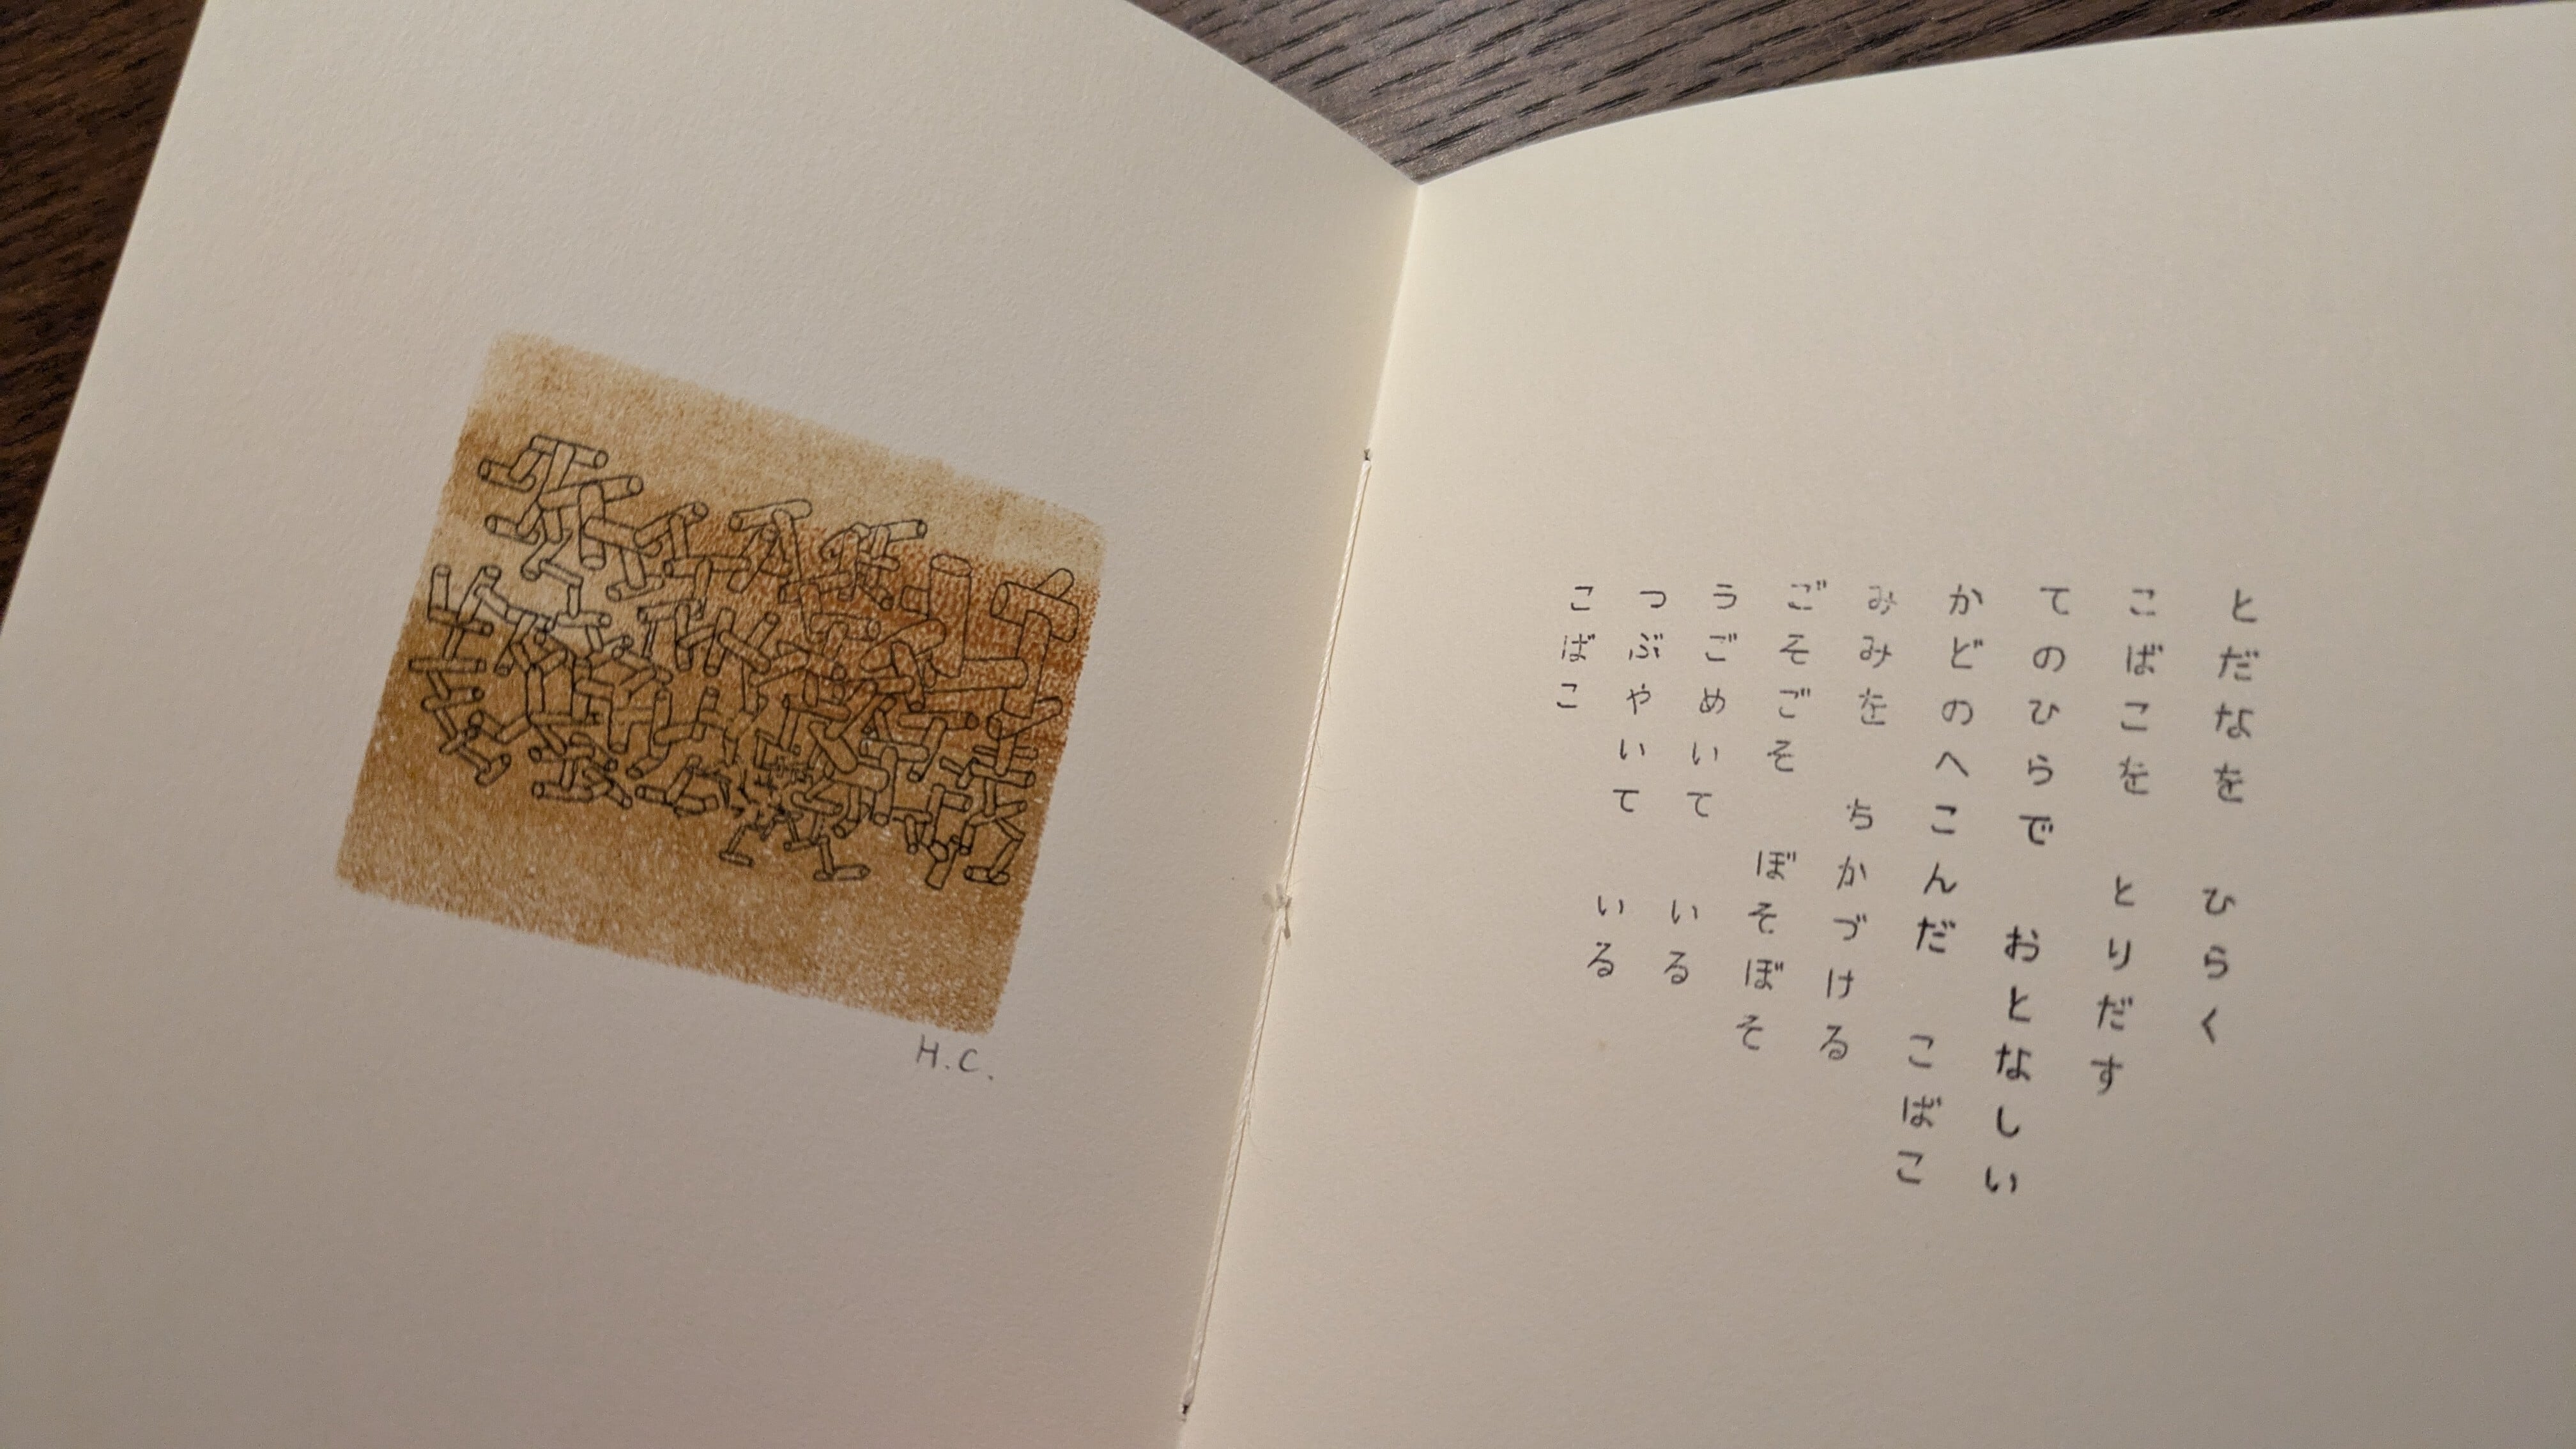 とだなを　ひらく
こばこを　とりだす
てのひらで　おとなしい
かどのへこんだ　こばこ
みみを　ちかづける
ごそごそ　ぼそぼそ
うごめいて　いる
つぶやいて　いる
こばこ
H.C.